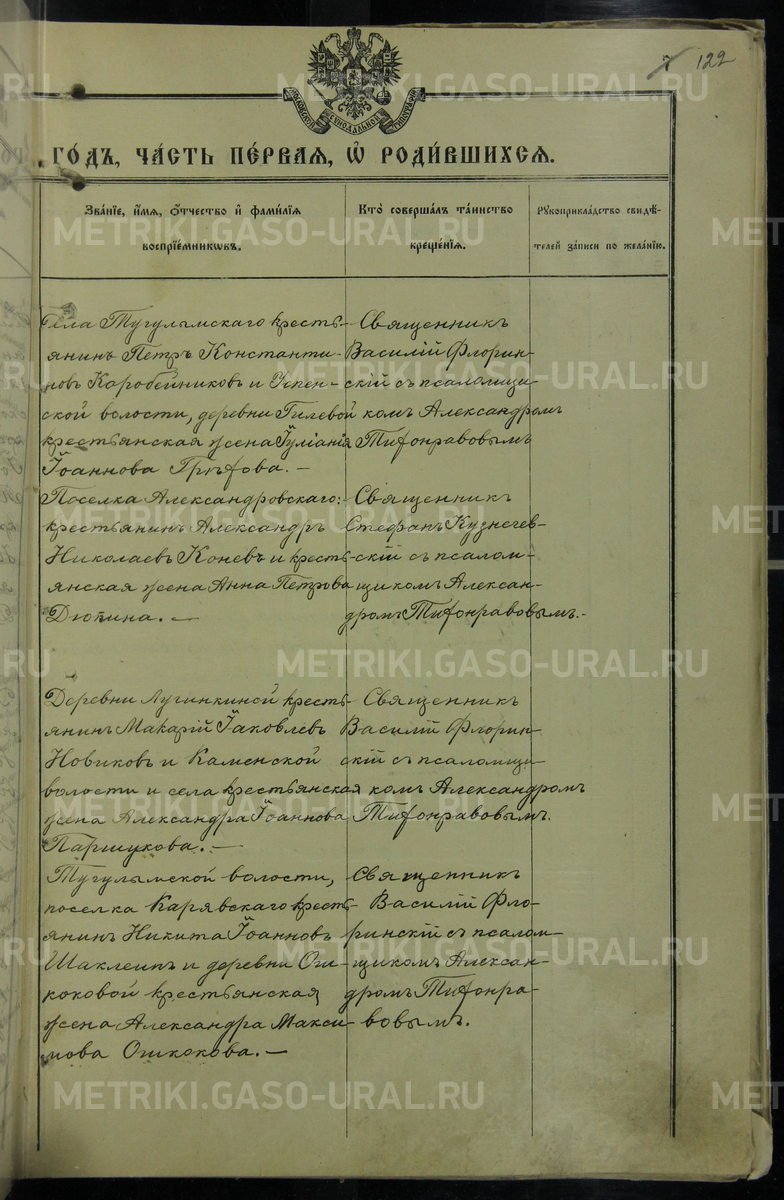 7 122
МОСКОВСКОЙ СИНОДАЛЬНОЙ ТИПОГРАФІИ
ГО́ДЪ, ЧА́СТЬ ПЕ́РВАЯ, Ѡ РОДИ́ВШИХСЯ.
Зва́ніе, и҆́мя, ѻ҆́тчество и҆ фами́лія
воспріе́мникѡвъ.
Кто̀ соверша́лъ та́инство
креще́нія.
Рꙋкоприкла́дство свидѣ́-
телей за́писи по жела́нію.
Села Тугулымскаго кресть-
янинъ Петръ Константи-
новъ Коробейниковъ и Успен-
ской волости, деревни Гилевой
крестьянская жена Іуліанія
Іоаннова Грѣхова. —
Священникъ
Василій Флорин-
скій съ псаломщи-
комъ Александромъ
Тихонравовымъ
Поселка Александровскаго:
крестьянинъ Александръ
Николаевъ Коневъ и кресть-
янская жена Анна Петрова
Дюпина. —
Священникъ
Стефанъ Кузнечев-
скій съ псалом-
щикомъ Алексан-
дромъ Тихонравовымъ. -
Деревни Лучинкиной кресть-
янинъ Макарій Іаковлевъ
Новиковъ и Каменской
волости и села крестьянская
жена Александра Іоаннова
Паршукова. —
Священникъ
Василій Флорин-
скій съ псаломщи-
комъ Александромъ
Тихонравовымъ.
Тугулымской волости,
поселка Карявскаго кресть-
янинъ Никита Іоанновъ
Шаклеинъ и деревни Ош-
коковой крестьянская
жена Александра Макси-
мова Ошкокова. —
Священникъ
Василій Фло-
ринскій съ псалом-
щикомъ Алексан-
дромъ Тихонра-
вовымъ.
METRIKI.GASO-URAL.RU